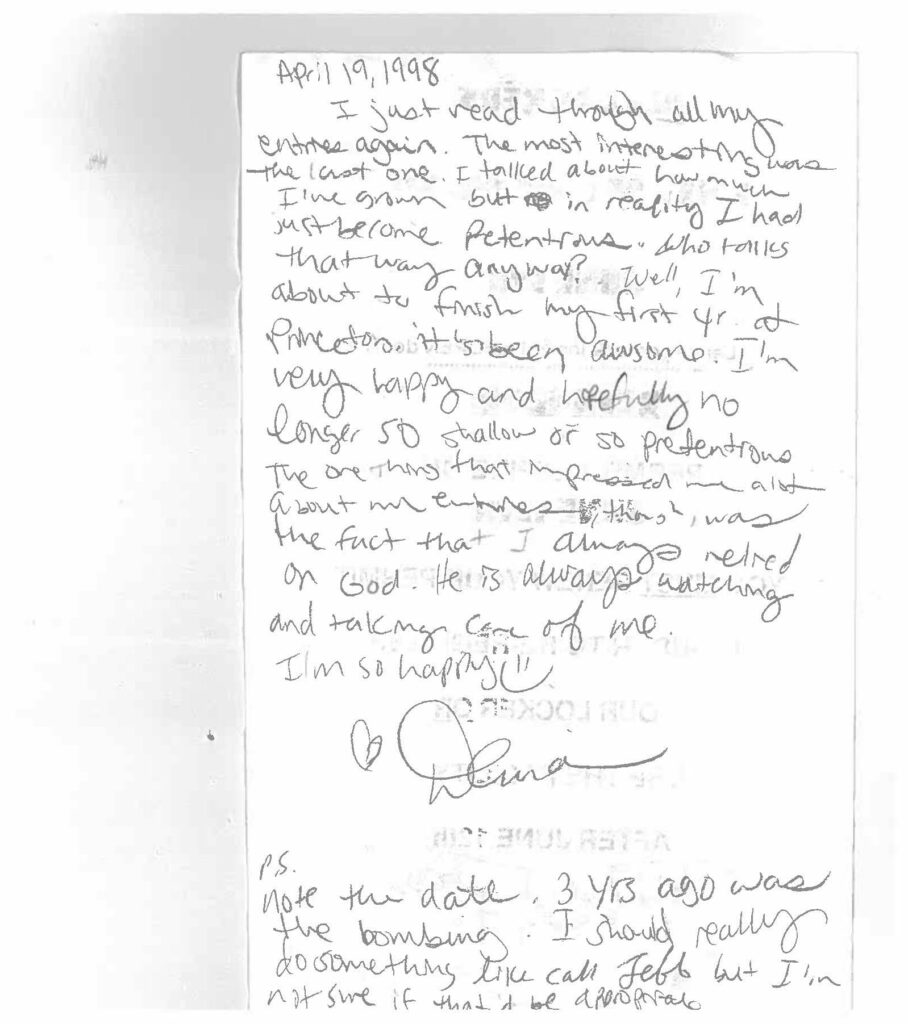 April 19, 1998
I just read through all my
entries again. The most interesting was
the last one. I talked about how much
I've grown but in reality I had
just become Petentious. Who talks
that way anyway? Well, I'm
about to finish my first yr. at
Princeton. it's been awsome. I'm
very happy and hopefully no
longer so shallow or so pretentious
The one thing that impressed me alot
about my entries, tho', was
the fact that I always relied
on God. He is always watching
and taking care of me.
I'm so happy!!
P.S.
Note the date. 3 yrs ago was
the bombing. I should really
do something like call Jeff but I'm
not sure if that'd be appropriate
OUR LOCKER OR
AFTER JUNE 12th